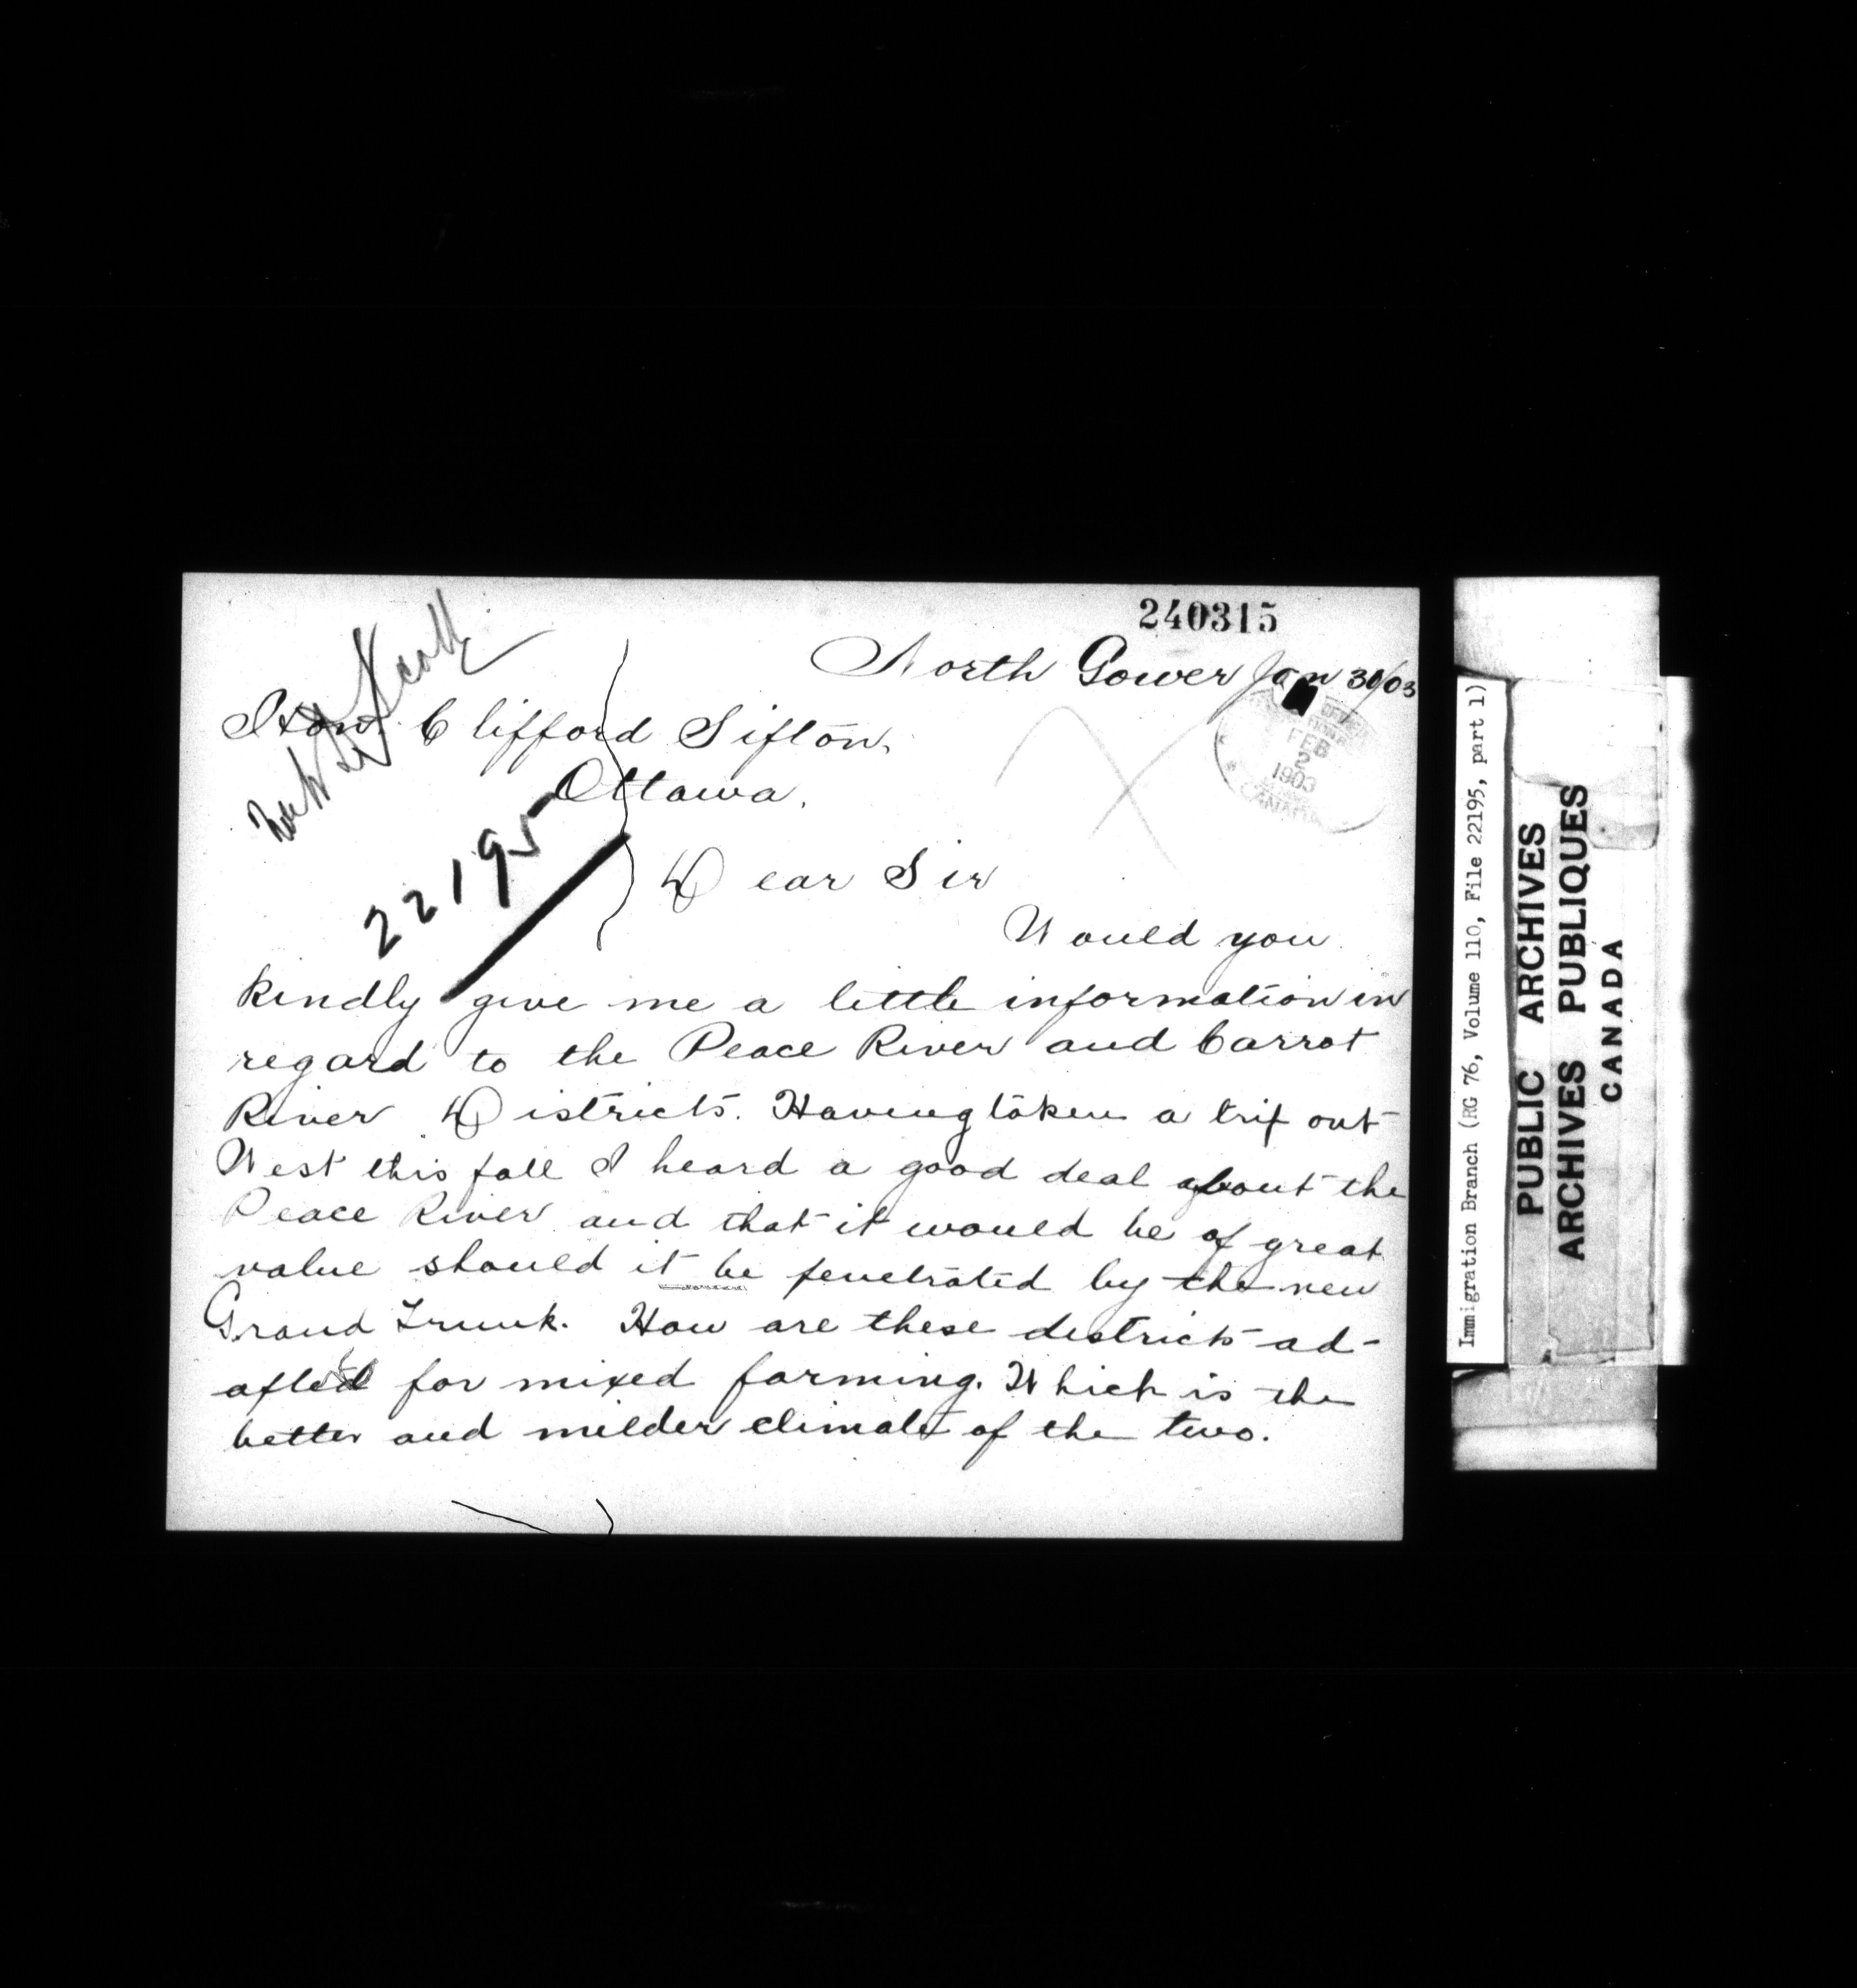 240315
North Gower Jan 30/03
Hon. Clifford Sifton,
Ottawa.
FEB
2
1903
CANADA
22195
Dear Sir
Would you
kindly give me a little information in
regard to the Peace River and Carrot
River Districts. Having taken a trip out
West this fall I heard a good deal about the
Peace River and that it would be of great
value should it be penetrated by the new
Grand Trunk. How are these districts ad-
apted for mixed farming. Which is the
better and milder climate of the two.
Immigration Branch (RG 76, Volume 110, File 22195, part 1)
PUBLIC ARCHIVES
ARCHIVES PUBLIQUES
CANADA